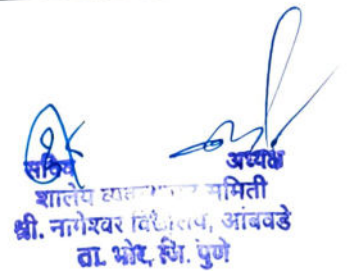 सचिव अध्यक्ष
शालेय व्यवस्थापन समिती
श्री. नागेश्वर विद्यालय, आंबवडे
ता. भोर, जि. पुणे